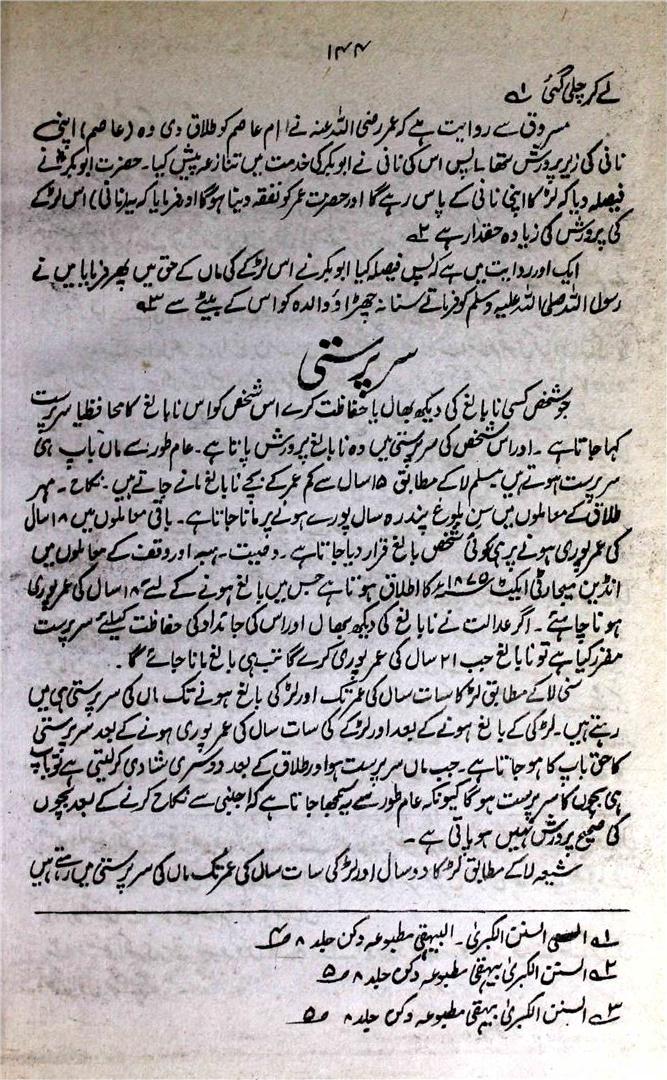 ۱۴۴
لے کر چلی گئی ؎۱
مسروق سے روایت ہے کہ عمر رضی اللہ عنہ نے ام عاصم کو طلاق دی وہ (عاصم) اپنی
نانی کی زیر پرورش تھا۔ پس اس کی نانی نے ابوبکر کی خدمت میں تنازعہ پیش کیا۔ حضرت ابوبکرؓ نے
فیصلہ دیا کہ لڑکا اپنی نانی کے پاس رہے گا اور حضرت عمر کو نفقہ دینا ہوگا اور فرمایا کہ یہ (نانی) اس لڑکے
کی پرورش کی زیادہ حقدار ہے ؎۲
ایک اور روایت میں ہے کہ پس فیصلہ کیا ابوبکر نے اس لڑکے کی ماں کے حق میں پھر فرمایا میں نے
رسول اللہ صلی اللہ علیہ وسلم کو فرماتے سنا نہ چھڑاؤ والدہ کو اس کے بیٹے سے ؎۳
سرپرستی
جو شخص کسی نابالغ کی دیکھ بھال یا حفاظت کرے اس شخص کو اس نابالغ کا محافظ یا سرپرست
کہا جاتا ہے۔ اور اس شخص کی سرپرستی میں وہ نابالغ پرورش پاتا ہے۔ عام طور سے ماں باپ ہی
سرپرست ہوتے ہیں مسلم لا کے مطابق ۱۵ سال سے کم عمر کے بچے نابالغ مانے جاتے ہیں۔ نکاح۔ مہر
طلاق کے معاملوں میں سن بلوغ پندرہ سال پورے ہونے پر مانا جاتا ہے۔ باقی معاملوں میں ۱۸ سال
کی عمر پوری ہونے پر ہی کوئی شخص بالغ قرار دیا جاتا ہے۔ وصیت۔ ہبہ اور وقف کے معاملوں میں
انڈین میجارٹی ایکٹ ۱۸۷۵ء کا اطلاق ہوتا ہے جس میں بالغ ہونے کے لئے ۱۸ سال کی عمر پوری
ہونا چاہئے۔ اگر عدالت نے نابالغ کی دیکھ بھال اور اس کی جائداد کی حفاظت کیلئے سرپرست
مقرر کیا ہے تو نابالغ جب ۲۱ سال کی عمر پوری کرے گا تب ہی بالغ مانا جائے گا۔
سنی لا کے مطابق لڑکا سات سال کی عمر تک اور لڑکی بالغ ہونے تک ماں کی سرپرستی ہی میں
رہتے ہیں۔ لڑکی کے بالغ ہونے کے بعد اور لڑکے کی سات سال کی عمر پوری ہونے کے بعد سرپرستی
کا حق باپ کا ہو جاتا ہے۔ جب ماں سرپرست ہو اور طلاق کے بعد دوسری شادی کر لیتی ہے تو باپ
ہی بچوں کا سرپرست ہوگا کیونکہ عام طور سے یہ سمجھا جاتا ہے کہ اجنبی سے نکاح کرنے کے بعد بچوں
کی صحیح پرورش نہیں ہو پاتی ہے۔
شیعہ لا کے مطابق لڑکا دو سال اور لڑکی سات سال کی عمر تک ماں کی سرپرستی میں رہتے ہیں
؎۱ السنن الکبریٰ۔ البیہقی مطبوعہ دکن جلد ۸ ص۴
؎۲ السنن الکبریٰ بیہقی مطبوعہ دکن جلد ۸ ص۵
؎۳ السنن الکبریٰ بیہقی مطبوعہ دکن جلد ۸ ص۵